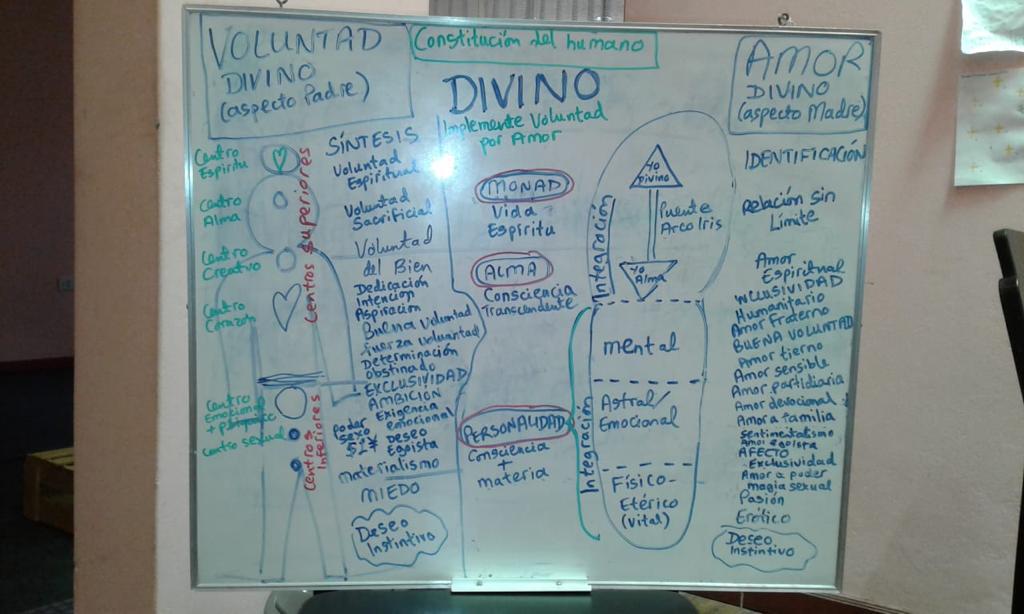 VOLUNTAD
DIVINO
(aspecto Padre)
Constitución del humano
DIVINO
Implemente Voluntad
por Amor
AMOR
DIVINO
(aspecto Madre)
Centro
Espiritu
Centro
Alma
Centro
Creativo
Centro
Corazón
Centro
Emocional
Centro sexual
Centros Superiores
Centros
Inferiores
SÍNTESIS
Voluntad
Espiritual
Voluntad
Sacrificial
Voluntad
del Bien
Dedicación
Intención
Aspiración
Buena Voluntad
fuerza voluntad
Determinación
obstinado
EXCLUSIVIDAD
AMBICION
Exigencia
emocional
poder
sexo
$£¥
Deseo
Egoista
materialismo
MIEDO
Deseo
Instintivo
MONAD
Vida
Espíritu
ALMA
Consciencia
Transcendente
PERSONALIDAD
Consciencia
+
materia
Integración
Integración
Yo
Divino
Puente
Arco Iris
Yo
Alma
mental
Astral/
Emocional
Físico-
Etérico
(Vital)
IDENTIFICACIÓN
Relación sin
Límite
Amor
Espiritual
INCLUSIVIDAD
Humanitario
Amor Fraterno
BUENA VOLUNTAD
Amor tierno
Amor sensible
Amor partidiaria
Amor devocional
Amor a familia
sentimentalismo
Amor egoista
AFECTO
Exclusividad
Amor a poder
magia sexual
Pasión
Erótico
Deseo
Instintivo